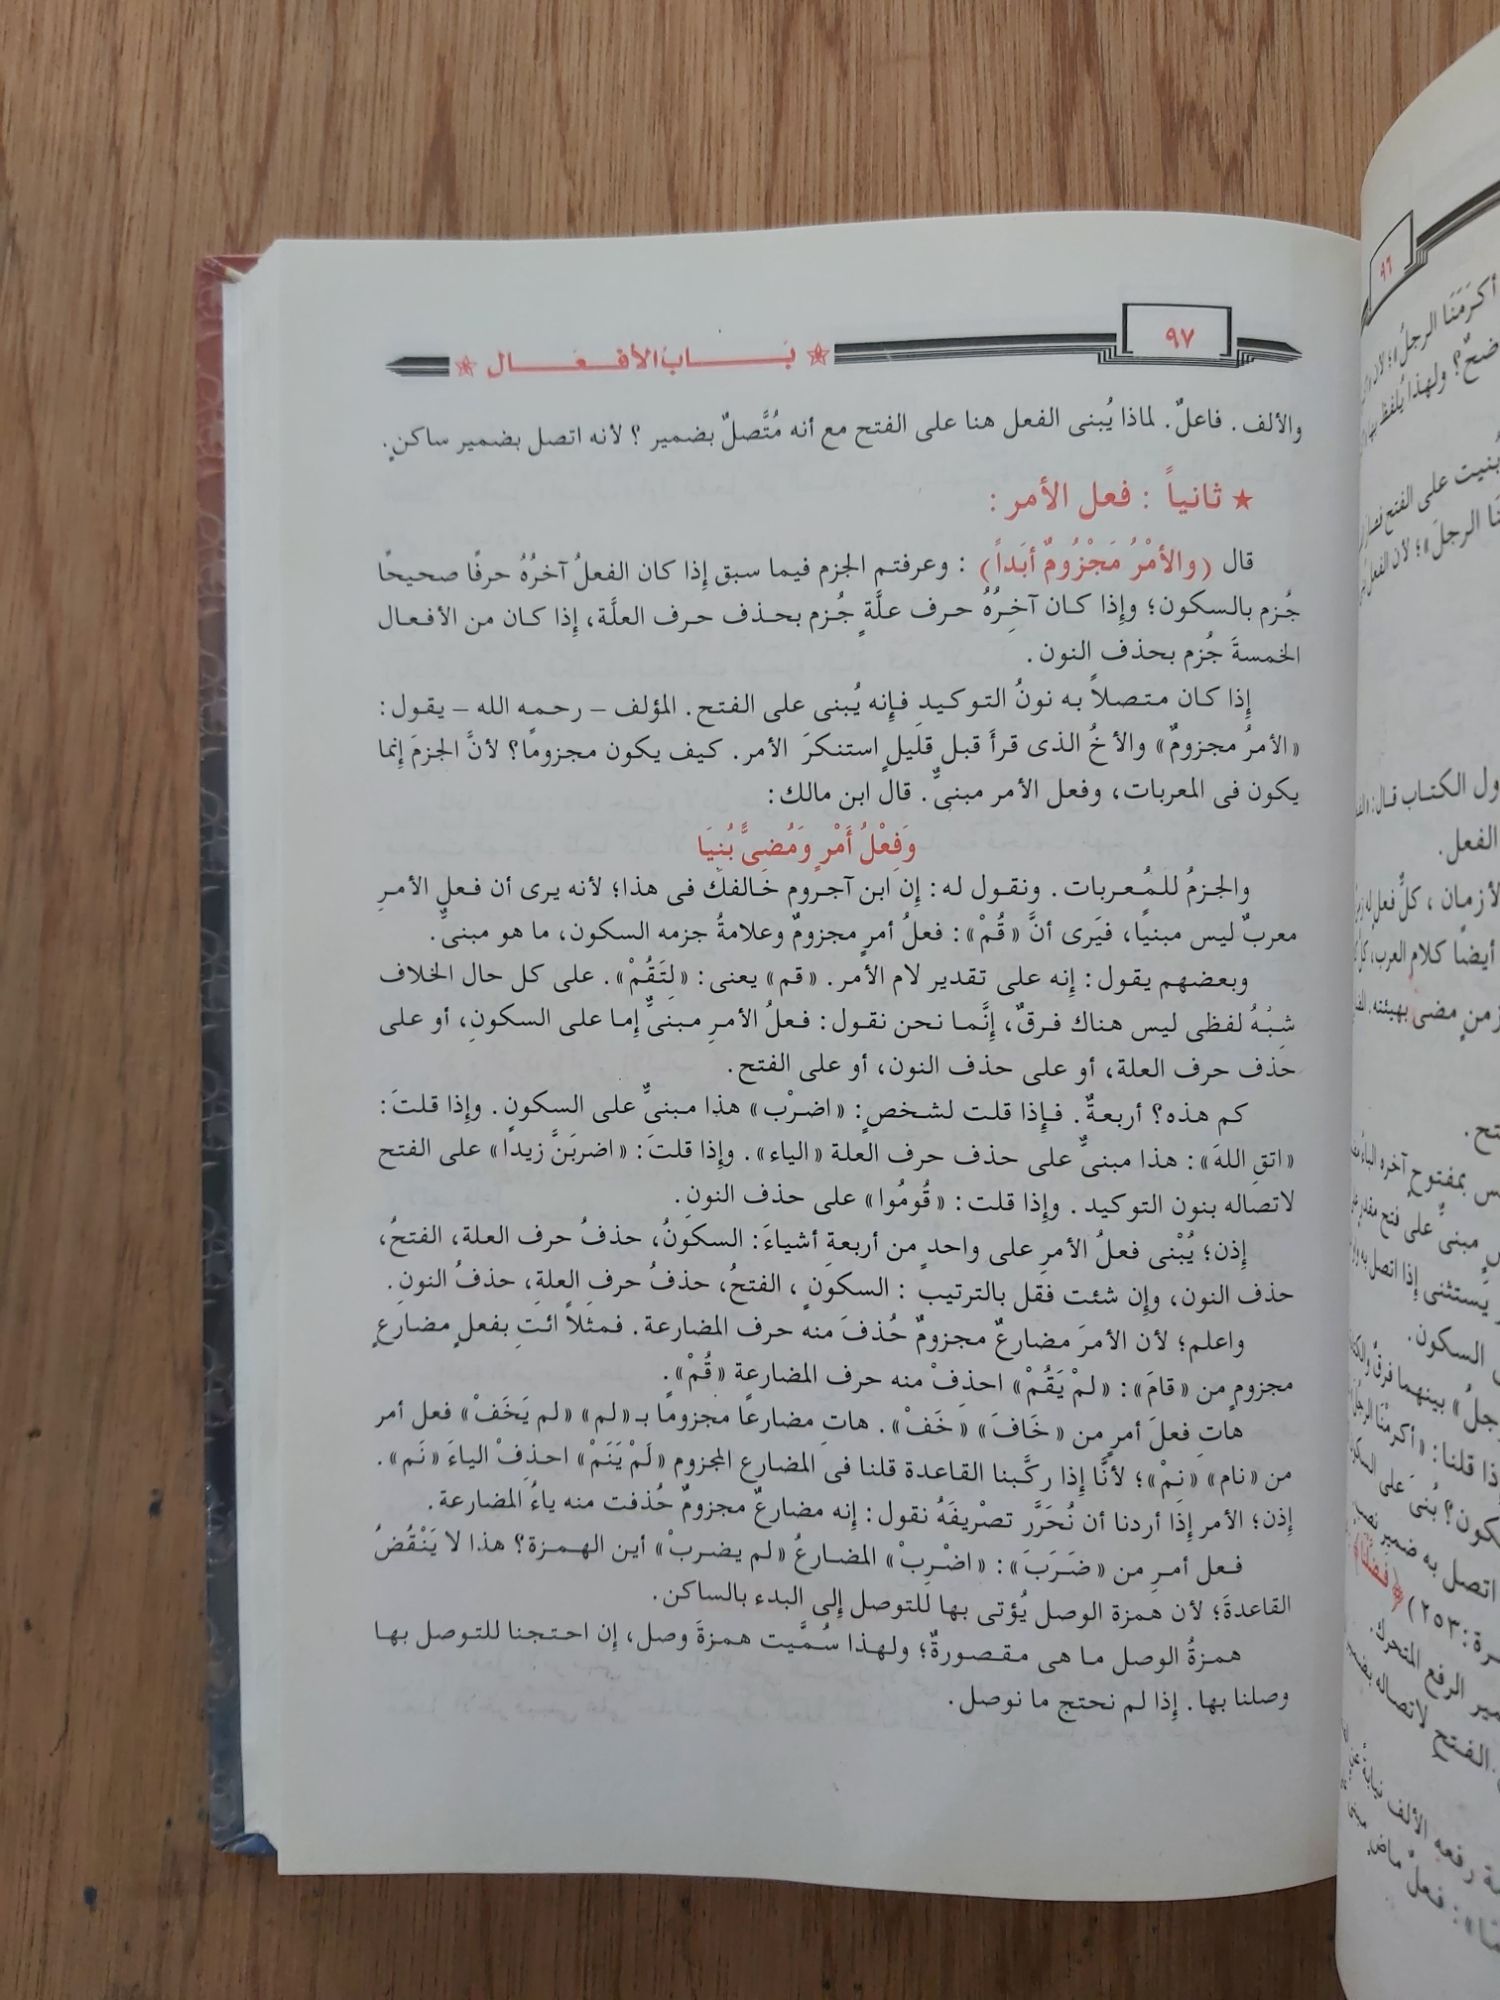 ٩٧
بَـــابُ الأفـعـــال
والألف. فاعلٌ. لماذا يُبنى الفعل هنا على الفتح مع أنه مُتَّصلٌ بضمير ؟ لأنه اتصل بضمير ساكنٍ.
★ ثانياً : فعل الأمر :
قال (والأمْرُ مَجْزُومٌ أبَداً) : وعرفتم الجزم فيما سبق إذا كان الفعلُ آخرُهُ حرفًا صحيحًا
جُزم بالسكون؛ وإذا كان آخِرُهُ حرف علَّةٍ جُزم بحذف حرف العلة، إذا كان من الأفعال
الخمسةَ جُزم بحذف النون.
إذا كان متصلاً به نونُ التوكيدِ فإنه يُبنى على الفتح. المؤلف – رحمه الله – يقول:
«الأمرُ مجزومٌ» والأخُ الذى قرأَ قبل قليلٍ استنكرَ الأمر. كيف يكون مجزوماً؟ لأنَّ الجزمَ إنما
يكون فى المعربات، وفعل الأمر مبنىٌّ. قال ابن مالك:
وَفِعْلُ أَمْرٍ وَمُضِىٍّ بُنِيَا
والجزمُ للمُعربات. ونقول له: إن ابن آجروم خالفك فى هذا؛ لأنه يرى أن فعل الأمرِ
معربٌ ليس مبنياً، فيَرى أنَّ «قُمْ»: فعلُ أمرٍ مجزومٌ وعلامةُ جزمه السكون، ما هو مبنىٌّ.
وبعضهم يقول: إنه على تقدير لام الأمر. «قم» يعنى: «لِتَقُمْ». على كل حال الخلاف
شِبْهُ لفظى ليس هناك فرقٌ، إنَّما نحن نقول: فعلُ الأمرِ مبنىٌّ إما على السكونِ، أو على
حذف حرف العلة، أو على حذف النون، أو على الفتح.
كم هذه؟ أربعةٌ. فإذا قلت لشخصٍ: «اضرْب» هذا مبنىٌّ على السكونِ. وإذا قلتَ:
«اتقِ اللهَ»: هذا مبنىٌّ على حذف حرف العلة «الياء». وإذا قلتَ: «اضربَنَّ زيدا» على الفتح
لاتصاله بنون التوكيد. وإذا قلت: «قُومُوا» على حذف النونِ.
إذن؛ يُبْنى فعلُ الأمرِ على واحدٍ من أربعةِ أشياءَ: السكونُ، حذفُ حرف العلة، الفتحُ،
حذف النون، وإن شئت فقل بالترتيب : السكون، الفتحُ، حذفُ حرفِ العلةِ، حذفُ النونِ.
واعلم؛ لأن الأمرَ مضارعٌ مجزومٌ حُذفَ منه حرف المضارعة. فمثلاً ائتِ بفعلٍ مضارعٍ
مجزومٍ من «قامَ»: «لمْ يَقُمْ» احذِفْ منه حرف المضارعة «قُمْ».
هاتِ فعلَ أمرٍ من «خَافَ» «خَفْ». هاتِ مضارعًا مجزوماً بـ«لم» «لم يَخَفْ» فعل أمر
من «نام» «نِمْ»؛ لأنَّا إذا ركَّبنا القاعدة قلنا فى المضارع المجزوم «لَمْ يَنَمْ» احذفْ الياءَ «نَم».
إذن؛ الأمر إذا أردنا أن نُحَرَّر تصْريفَهُ نقول: إنه مضارعٌ مجزومٌ حُذفت منه ياءُ المضارعة.
فعل أمرِ من «ضَرَبَ»: «اضْرِبْ» المضارعُ «لم يضربْ» أين الهمزة؟ هذا لا يَنْقُضُ
القاعدةَ؛ لأن همزة الوصل يُؤتى بها للتوصل إلى البدء بالساكن.
همزةُ الوصل ما هى مقصورةٌ؛ ولهذا سُمَّيت همزةَ وصل، إن احتجنا للتوصل بها
وصلنا بها. إذا لم نحتج ما نوصل.
٩٦
أكرَمَنَا الرجلُ»؛ لأن
ضحٌ؟ ولهذا يُلفظ بها
بُنيت على الفتح
نَا الرجلَ»؛ لأن الفعل
ول الكتاب قال:
الفعل.
لأزمان، كلُّ فعلٍ له
أيضاً كلام العرب،
زمنٍ مضى بهيئته.
تح.
س بمفتوحٍ آخره
مبنىٌّ على فتح مقدر
يستثنى إذا اتصل به
السكون.
جلُ» بينهما فرقٌ
ذا قلنا: «أكرمْنا
كون؟ بُنىَ على السكون
اتصل به ضمير
﴿فضَّلنَا
رة:٢٥٣)
ير الرفع المتحرك.
الفتح لاتصاله بضمير